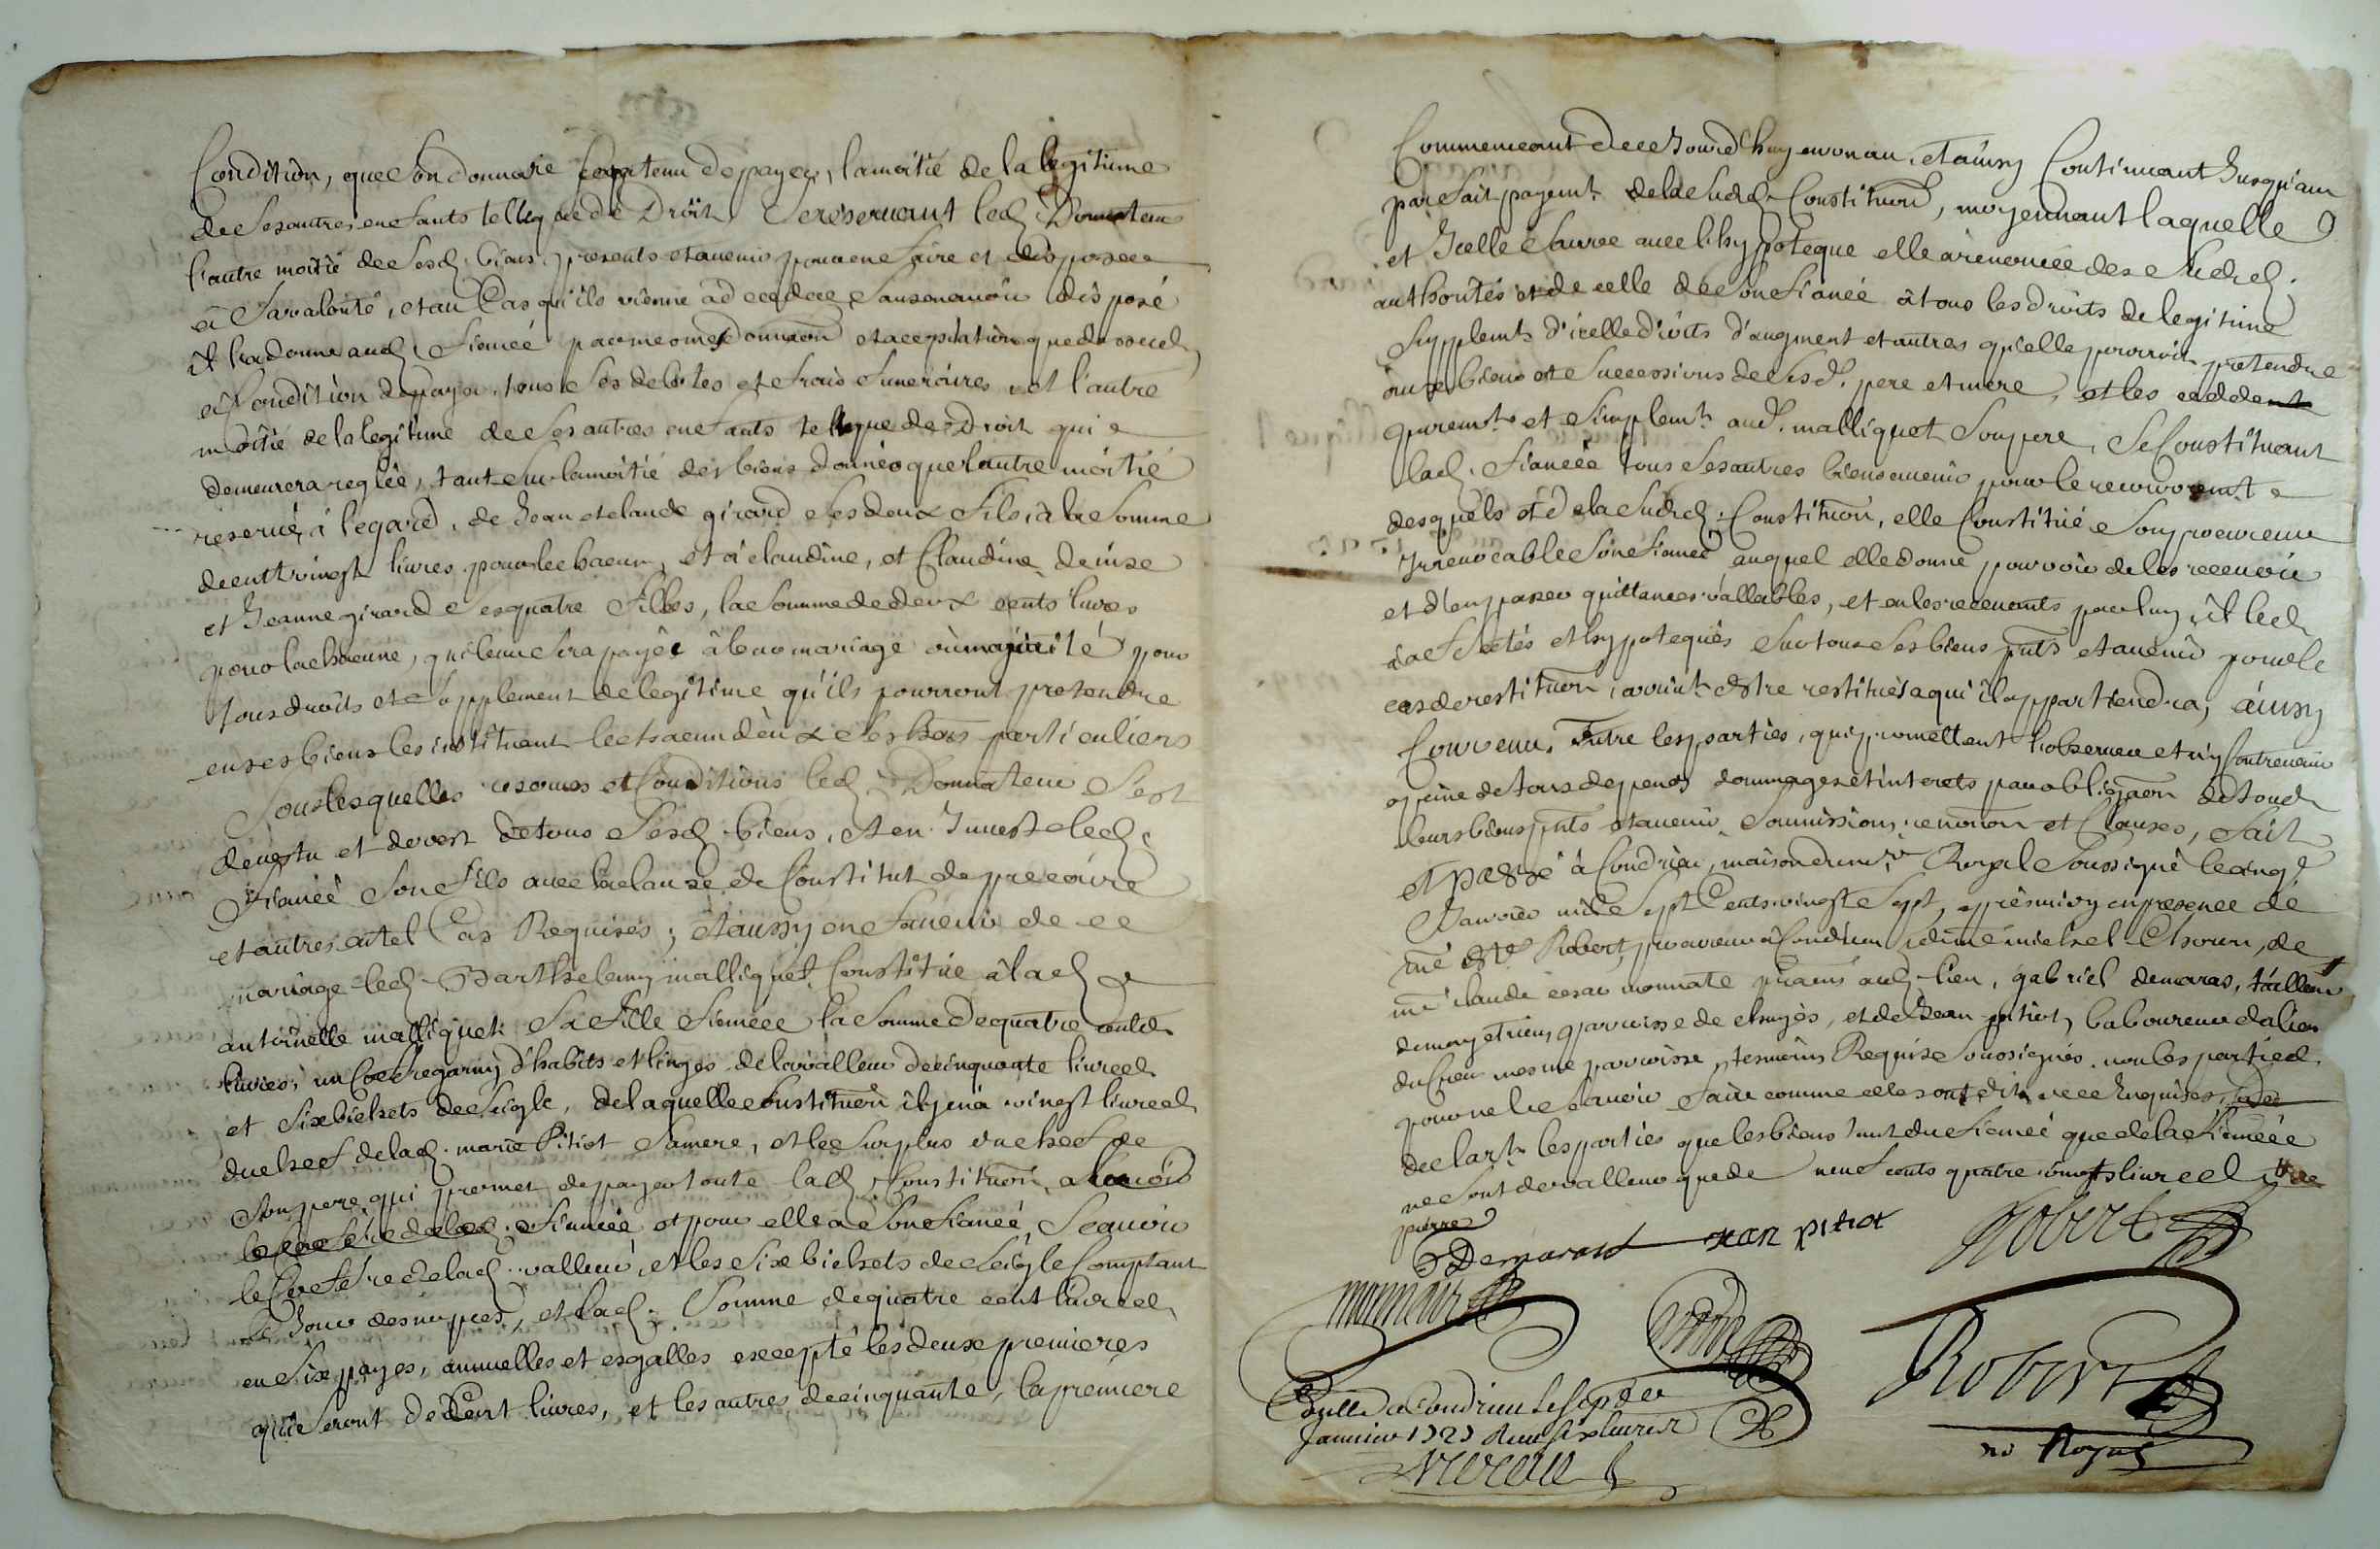 Condition, que son donnaire sera tenu de payer, la moitié de la legitime
de ses autres enfants telle que de Droit, Se reservant led. Donnateur
l'autre moitié de sesd. biens presents et avenir pour en faire et disposer
à sa valonté, et au Cas qu'ils vienne a deceder sans en avoir disposé
il l'a donne aud. fiancé par mesme donnaon et acceptation que dessus
à Condition de payer tous ses debtes et frais funeraires, et l'autre
moitié de la legitime de ses autres enfants telle que de Droit qui
demeurera reglée, tant sur la moitié des biens donnés que l'autre moitié
reservé, à l'egard, de Jean et claude girard ses deux fils, à la somme
de cent vingt livres pour chacun, et à claudine, et Claudine, denise
et Jeanne girard ses quatre filles, la somme de deux cents livres
pour chacune, qui leur sera payée à leur mariage ou majorité pour
tous droits et supplement de legitime qu'ils pourront pretendre
en ses biens les instituant chacun d'eux ses hers particuliers
Sous lesquelles reserves et Conditions led. Donnateur s'est
devestu et devest de tous sesd. biens, et en Invest led.
fiancé son fils avec la clause de Constitut de precaire
et autres au tel Cas Requises; et aussy en faveur de ce
mariage led. Barthelemy malliquet Constitue à lad.
antoinette malliquet sa fille fiancée la somme de quatre cents
livres, un Coffre garny d'habits et linges de la valleur de cinquante livres
et six bichets de seigle, de laquelle Constituon il y en a vingt livres
du chef de lad. marie Pitiot sa mere, et le surplus du chef de
son pere qui promet de payer toute lad. Constituon, a scavoir
fiancée et pour elle a son fiancé, Scavoir
le Coffre de lad. valleur, et les six bichets de seigle Comptant
le Jour des nupces, et lad. Somme de quatre cent livres
en six payes, annuelles et esgalles excepté les deux premieres
qui seront de Cent livres, et les autres de cinquante, la premiere
Commencant de ce Jourd'huy en un an, et ainsy Continuant Jusqu'au
parfait payemt. de la susd. Constituon, moyennant laquelle
et Icelle sauve avec l'hypoteque elle a renoncée des susd.
authorités et de celle de son fiancé à tous les droits de legitime
supplemt. d'icelle droits d'augment et autres qu'elle pourroit pretendre
aux biens et successions de sesd. pere et mere, et les cedde
puremt. et simplemt. aud. malliquet son pere, Se Constituant
lad. fiancée tous ses autres biens avenir pour le recouvremt.
desquels et de la susd. Constituon, elle Constitue son procureur
Irrevocable son fiancé auquel elle donne pouvoir de les recevoir
et d'en passer quittances vallables, et en les recevants par luy, il led.
a affectés et hypotequés sur tous ses biens pnts et avenir pour le
cas de restituon, avenant estre restitués a qui il appartiendra, ainsy
Convenu Entre les parties, qui promettent l'observer et n'y Contrevenir
a peine de tous depends dommages et interets par obligaon de tous
leurs biens pnts et avenir, soumissions, renonon et Clauses, fait
et passé à Condrieu, maison du no.re Royal soussigné le cinq.e
Janvier mil sept Cents vingt sept, apres midy en presence de
me Robert, procureur à Condrieu, michel Chorun, de
me claude cesar monnate aud. lieu, gabriel demaras, tailleur
parroisse de chuyès, et de Jean pitiot, laboureur
du lieu mesme parroisse, tesmoins Requis soussignés, non les parties
pour ne le scavoir faire comme elles ont dit de ce Enquises,
declart. les parties que les biens tant du fiancé que de la fiancée
ne sont de valleur que de neuf cents quatre vingts livres
Demaras jean pitiot Robert
monnate
Robert
Collé a Condrieu le sept de
Janvier 1727 Recu six livres
no Royal